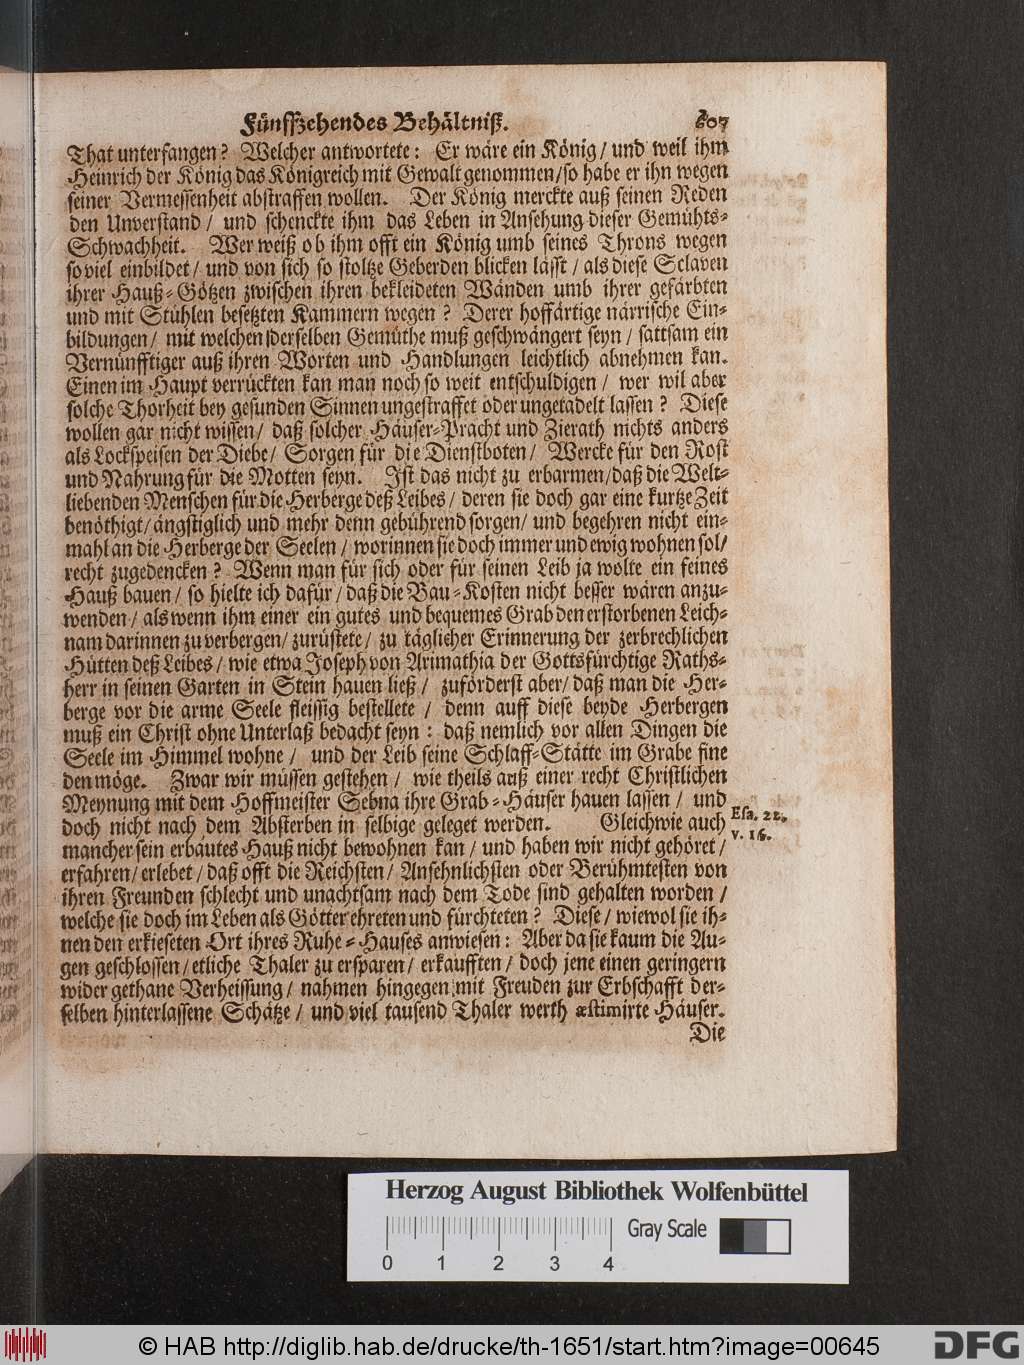 Fünffzehendes Behältniß. 607
That unterfangen? Welcher antwortete: Er wäre ein König/ und weil ihm
Heinrich der König das Königreich mit Gewalt genommen/ so habe er ihn wegen
seiner Vermessenheit abstraffen wollen. Der König merckte auß seinen Reden
den Unverstand/ und schenckte ihm das Leben in Ansehung dieser Gemühts-
Schwachheit. Wer weiß ob ihm offt ein König umb seines Throns wegen
so viel einbildet/ und von sich so stoltze Geberden blicken lässt/ als diese Sclaven
ihrer Hauß-Götzen zwischen ihren bekleideten Wänden umb ihrer gefärbten
und mit Stühlen besetzten Kammern wegen? Derer hoffärtige närrische Ein-
bildungen/ mit welchen derselben Gemüthe muß geschwängert seyn/ sattsam ein
Vernünfftiger auß ihren Worten und Handlungen leichtlich abnehmen kan.
Einen im Haupt verrückten kan man noch so weit entschuldigen/ wer wil aber
solche Thorheit bey gesunden Sinnen ungestraffet oder ungetadelt lassen? Diese
wollen gar nicht wissen/ daß solcher Häuser-Pracht und Zierath nichts anders
als Lockspeisen der Diebe/ Sorgen für die Dienstboten/ Wercke für den Rost
und Nahrung für die Motten seyn. Ist das nicht zu erbarmen/ daß die Welt-
liebenden Menschen für die Herberge deß Leibes/ deren sie doch gar eine kurtze Zeit
benöthigt/ ängstiglich und mehr denn gebührend sorgen/ und begehren nicht ein-
mahl an die Herberge der Seelen/ worinnen sie doch immer und ewig wohnen sol/
recht zugedencken? Wenn man für sich oder für seinen Leib ja wolte ein feines
Hauß bauen/ so hielte ich dafür/ daß die Bau-Kosten nicht besser wären anzu-
wenden/ als wenn ihm einer ein gutes und bequemes Grab den erstorbenen Leich-
nam darinnen zu verbergen/ zurüstete/ zu täglicher Erinnerung der zerbrechlichen
Hütten deß Leibes/ wie etwa Joseph von Arimathia der Gottsfürchtige Raths-
herr in seinen Garten in Stein hauen ließ/ zuförderst aber/ daß man die Her-
berge vor die arme Seele fleissig bestellete/ denn auff diese beyde Herbergen
muß ein Christ ohne Unterlaß bedacht seyn: daß nemlich vor allen Dingen die
Seele im Himmel wohne/ und der Leib seine Schlaff-Stätte im Grabe fine
den möge. Zwar wir müssen gestehen/ wie theils auß einer recht Christlichen
Meynung mit dem Hoffmeister Sebna ihre Grab-Häuser hauen lassen/ und
doch nicht nach dem Absterben in selbige geleget werden. Gleichwie auch
Esa. 22.
v. 16.
mancher sein erbautes Hauß nicht bewohnen kan/ und haben wir nicht gehöret/
erfahren/ erlebet/ daß offt die Reichsten/ Ansehnlichsten oder Berühmtesten von
ihren Freunden schlecht und unachtsam nach dem Tode sind gehalten worden/
welche sie doch im Leben als Götter ehreten und fürchteten? Diese/ wiewol sie ih-
nen den erkieseten Ort ihres Ruhe-Hauses anwiesen: Aber da sie kaum die Au-
gen geschlossen/ etliche Thaler zu ersparen/ erkaufften/ doch jene einen geringern
wider gethane Verheissung/ nahmen hingegen mit Freuden zur Erbschafft der-
selben hinterlassene Schätze/ und viel tausend Thaler werth æstimirte Häuser.
Die
Herzog August Bibliothek Wolfenbüttel
Gray Scale
0 1 2 3 4
© HAB http://diglib.hab.de/drucke/th-1651/start.htm?image=00645
DFG